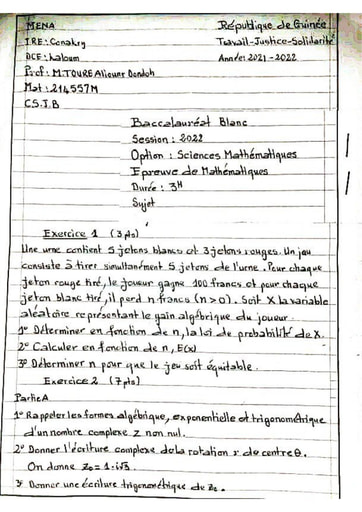 MENA République de Guinée
IRE: Conakry Travail-Justice-Solidarité
DCE: Kaloum Année 2021-2022
Prof: M.TOURE Aliouer Dondoh
Mat: 214557M
CS.J.B
Baccalauréat Blanc
Session: 2022
Option: Sciences Mathématiques
Epreuve de Mathématiques
Durée: 3H
Sujet
Exercice 1 (3pts)
Une urne contient 5 jetons blancs et 3 jetons rouges. Un jeu
consiste à tirer simultanément 5 jetons de l'urne. Pour chaque
jeton rouge tiré, le joueur gagne 100 francs et pour chaque
jeton blanc tiré, il perd n francs (n>0). Soit X la variable
aléatoire représentant le gain algébrique du joueur.
1° Déterminer en fonction de n, la loi de probabilité de X.
2° Calculer en fonction de n, E(x)
3° Déterminer n pour que le jeu soit équitable.
Exercice 2 (7pts)
Partie A
1° Rappeler les formes algébrique, exponentielle et trigonométrique
d'un nombre complexe z non nul.
2° Donner l'écriture complexe de la rotation r de centre θ.
On donne z₀ = 1-i√3
3° Donner une écriture trigonométrique de z₀.